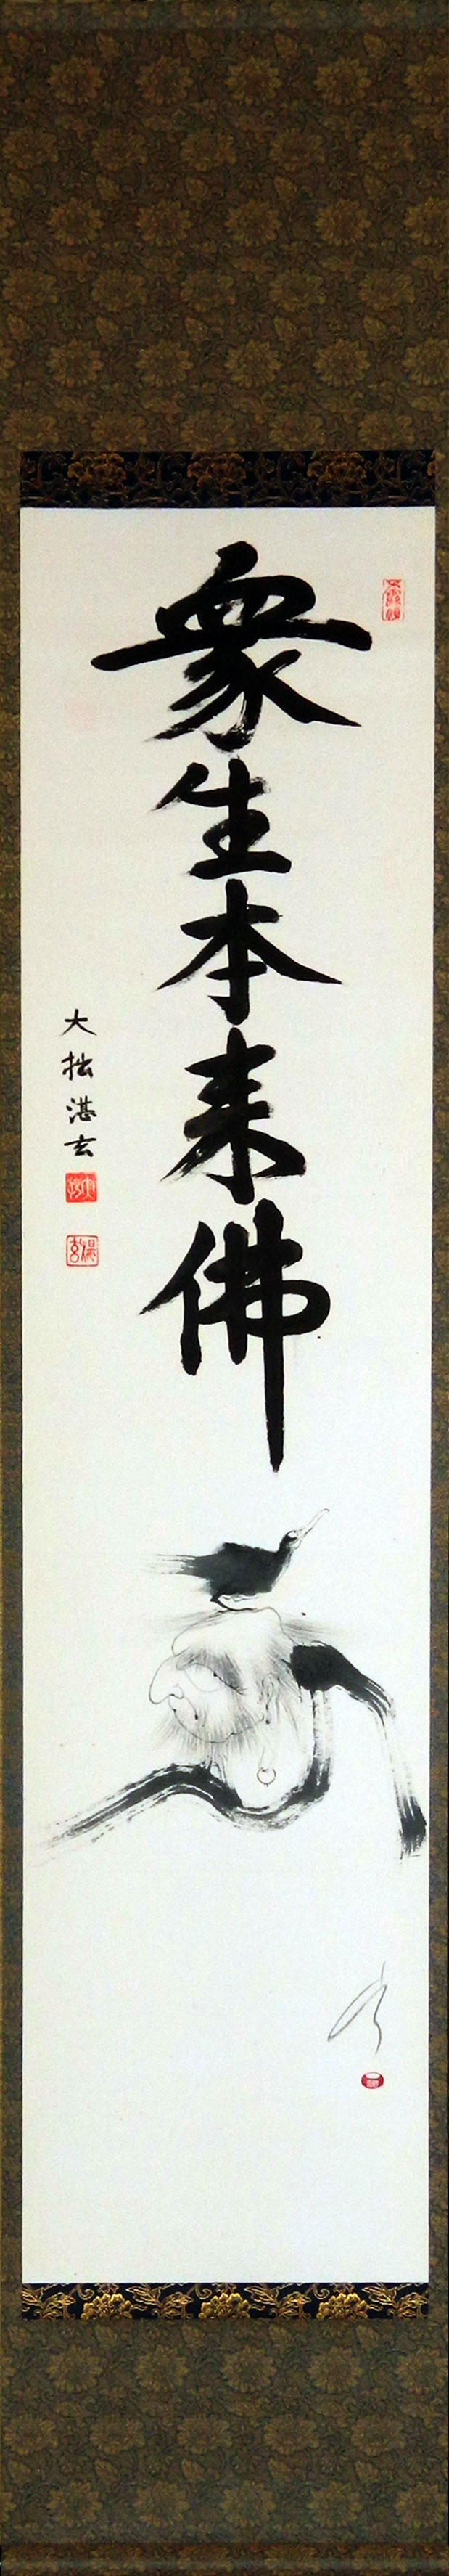 衆生本来佛
大拙湛玄